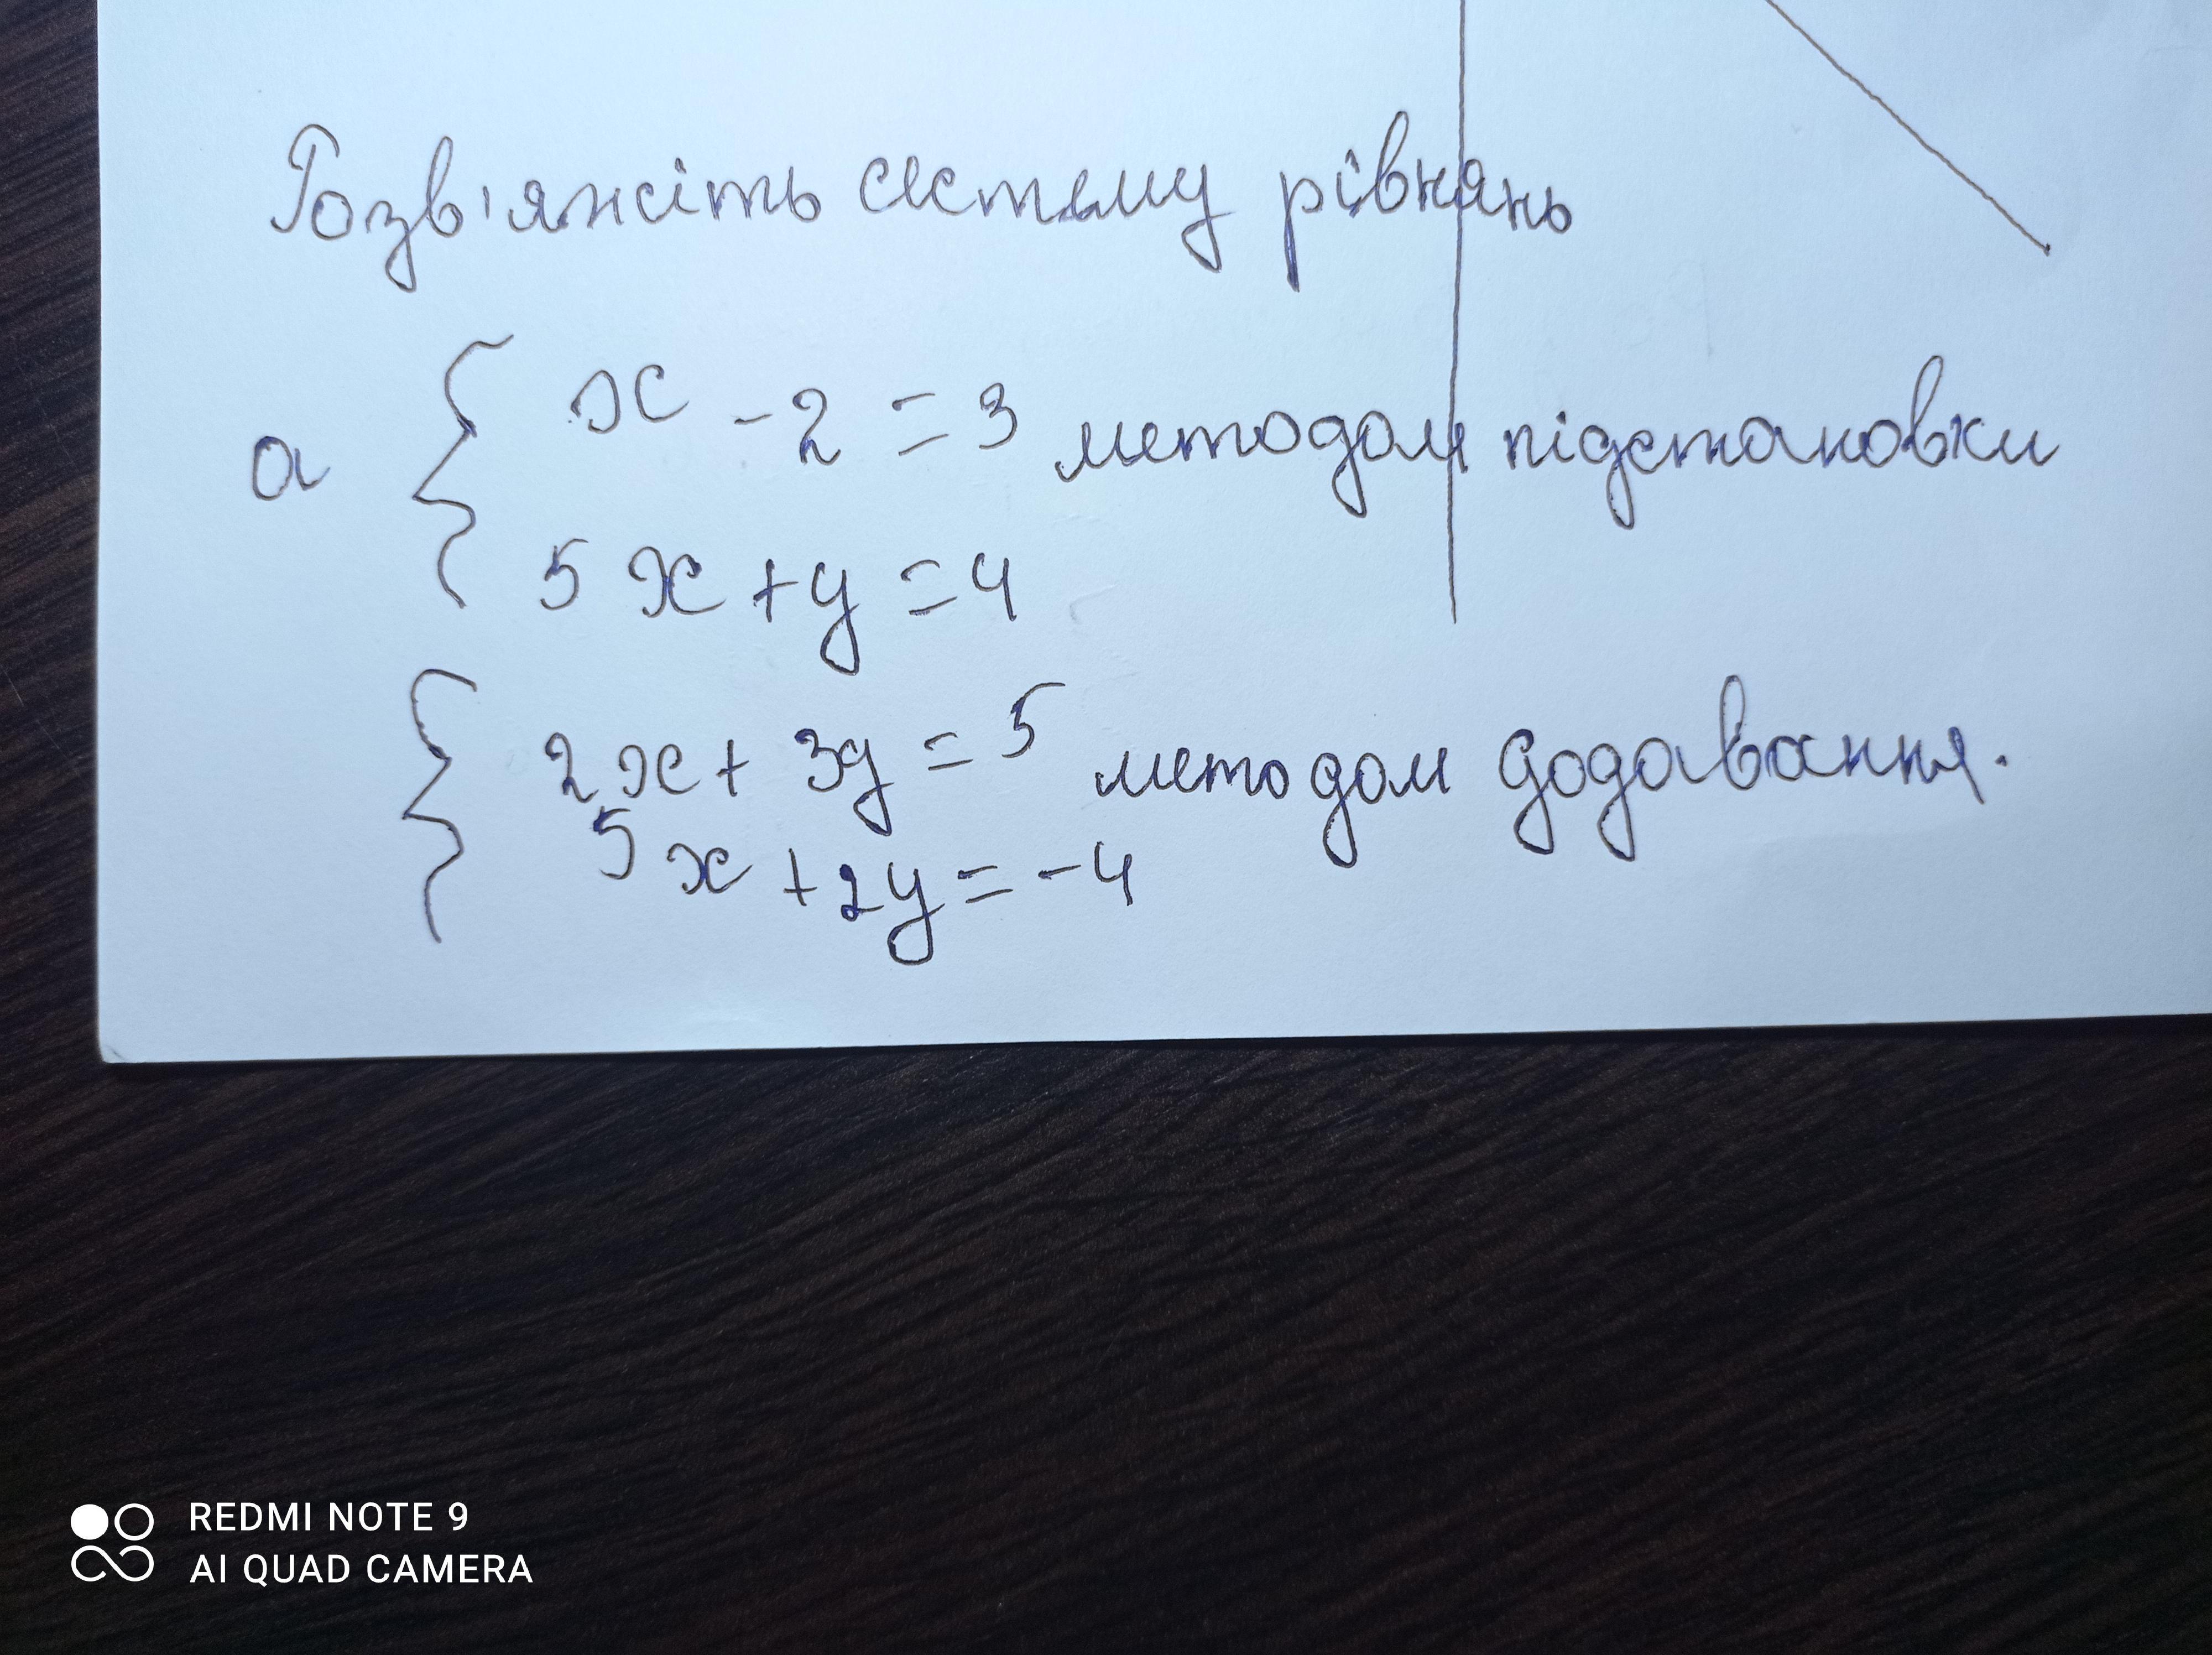 Розв'яжіть систему рівнянь
а { x - 2 = 3 методом підстановки
5x + y = 4
{ 2x + 3y = 5 методом додавання.
5x + 2y = -4
REDMI NOTE 9
AI QUAD CAMERA